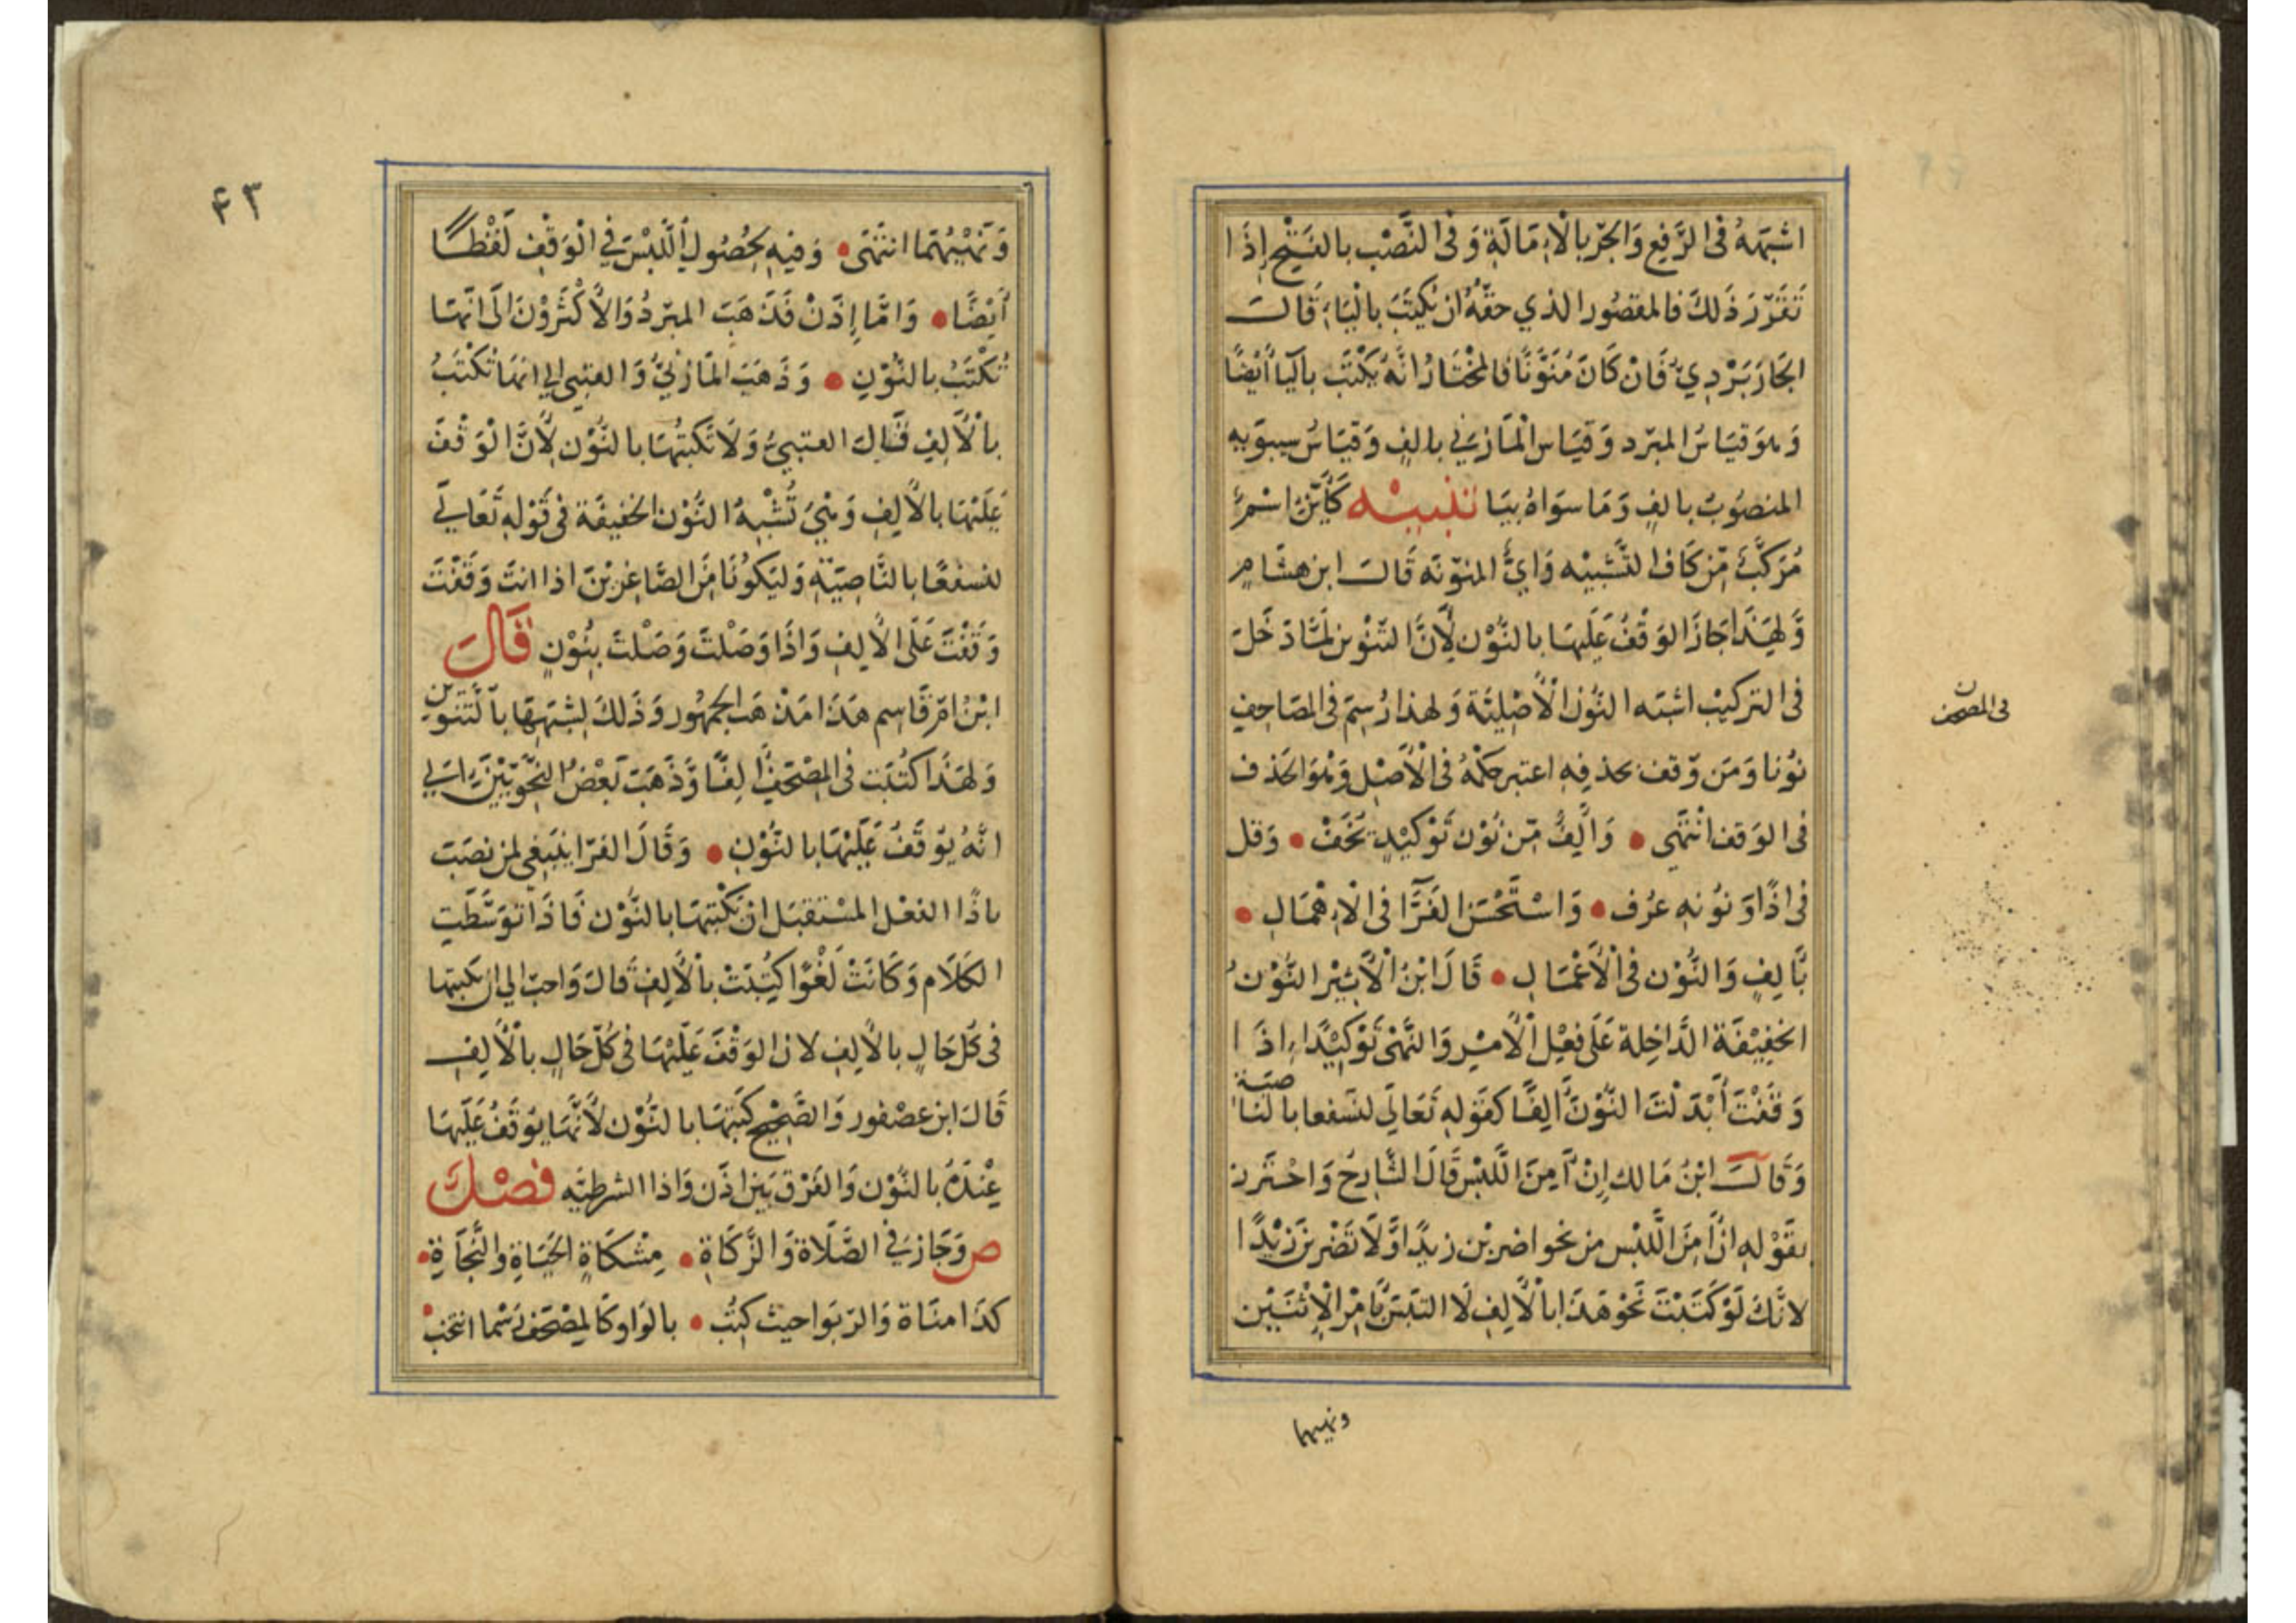 اشبهه في الرَّفع وَالجَرّ بالْاِمَالَةِ وَفي النَّصْب بالفَتْح اِذَا
تَقَرّرَ ذَلكَ فالمقصُور الذي حقّهُ ان يُكتَبَ بالْيَاءِ قَالَ
الجَارَبَرْدِيّ فَانْ كَانَ مُنَوَّنًا فالمُخْتَارُ انَّهُ يُكْتَب باليَا أَيْضًا
وَهوَ قيَاسُ المبَرّد وَقيَاس الْمَازني بالفٍ وَقيَاسُ سيبوَيه
المنصُوبُ بالفٍ وَمَا سوَاهُ بيَا تنبيْه كَأَيِّنْ اسْمٌ
مُرَكَّبٌ مِّن كَاف التَّشبيْه وَايٍّ المنوّنَه قَالَ ابن هشَامٍ
وَلهَذَا جَازَ الوَقْفُ عَلَيهَا بالنُّوْن لِأَنَّ التَّنْوينَ لمَّا دَخَلَ
في التركيْب اشبَه النُّوْنَ الْأَصْلِيَّة وَلهذا رُسِمَ في المصَاحِفِ
نُوْنا وَمَن وّقف بحذفِه اعتبر حكْمهُ في الْأَصْل وَهُوَ الحَذف
في الوَقف انْتَهَى • وَأَلِفٌ مِّن نُوْن تَوْكيْدٍ تُخَفّ • وَقل
في اذًا وَنُونِه عُرف • وَاسْتَحْسَنَ الفَرَّا في الْاِهْمَالِ •
بَّالِفٍ وَالنُّوْن في الْأَعْمَالِ • قَالَ ابْنُ الْأَثِيْر النُّوْنُ
الخفِيْفَة الدَّاخِلة عَلَى فعْلِ الْأَمْرِ وَالنَّهْيُ تَوْكيْدًا اِذَا
وَقَفْتَ أَبْدَلْتَ النُّوْنَ أَلِفًا كقَوله تَعَالَى لنسفعا بالنا
صيَة
وَقَالَ ابْنُ مَالك اِنْ أَمِنَ اللَّبْس قَالَ الشَّارِحُ وَاحْتَرز
بقَوْله ان أَمِنَ اللَّبْس من نحو اضربْن زيدًا وَّلَا تَضْربَنْ زَيْدًا
لانَّكَ لَوْ كَتَبْتَ نَحْوَ هَذَا بالْأَلِفِ لَا التبَسَ بَّامْر الْاِثْنَيْن
ونهيهما
في المصحف
ن
۴۳
وَنَهْيِهمَا انتَهَى • وَفيه لحُصُول اللَّبْسَ في الْوَقْفِ لَفْظًا
أَيْضًا • وَامَّا اِذَنْ فَذَهَبَ المبَرّدُ وَالأَكْثَرُوْنَ الَى انَّهَا
تُكْتَبُ بالنُّوْنِ • وَذَهَبَ المَازنيُّ وَالعتبي الي انهَا تُكْتَبُ
بالْأَلِفِ قَالَ العتبيُّ وَلَا تَكتبُهَا بالنُّوْن لِأَنَّ الْوَقْفَ
عَلَيْهَا بالْأَلِفِ وَهْيَ تُشْبِهُ النُّوْنَ الخفيفَة في قَوْلهِ تَعَالى
لنسفعًا بالنَّاصِيَةِ وَليَكوُنًا مِّنَ الصَّاغِرِيْنَ اذا انتَ وَقَفْتَ
وَقَفْتَ عَلَى الْأَلِفِ وَاذَا وَصَلْتَ وَصَلْتَ بنُوْنٍ قَالَ
ابْنُ امّ قَاسِم هَذَا مَذْهَب الجمهُور وَذَلكَ لِشَبَههَا بالتَّنوينِ
وَلهَذَا كتُبَت في المصْحَفِ أَلِفًا وَّذَهَبَ بَعْضُ النَّحْوِيِّيْنَ الى
انَّهُ يُوْقَفُ عَلَيْهَا بالنُّوْنِ • وَقَالَ الفَرّا ينبَغي لمن نصَبَ
باذًا الفعْل المسْتقبَل انْ يَّكْتبَهَا بالنُّوْن فَاذَا تَوَسَّطَتِ
الكَلَام وَكَانَتْ لَغْوًا كتُبَتْ بالْأَلِفِ قَالَ وَاحبّ الي ان تكتبها
في كُلّ حَالٍ بالْأَلِفِ لانّ الوَقْفَ عَلَيْهَا في كُلّ حَالٍ بالْأَلِفِ
قَالَ ابن عصْفور وَالصَّحِيْح كَتبُهَا بالنُّوْن لأَنَّهَا يُوْقَفُ عَلَيهَا
عِنْدَهُ بالنُّوْن وَالفَرْق بَيْنَ اذَن وَاذا الشرطيَّه فصْلٌ
ص وَجَازَ في الصَّلَاة وَالزَّكَاةِ • مِشكَاةٍ الحَيَاةِ والنَّجَاةِ •
كذَا منَاة وَالرّبَوا حيث كتُب • بالوَاو كالمصْحَف رَسْما انتخب •